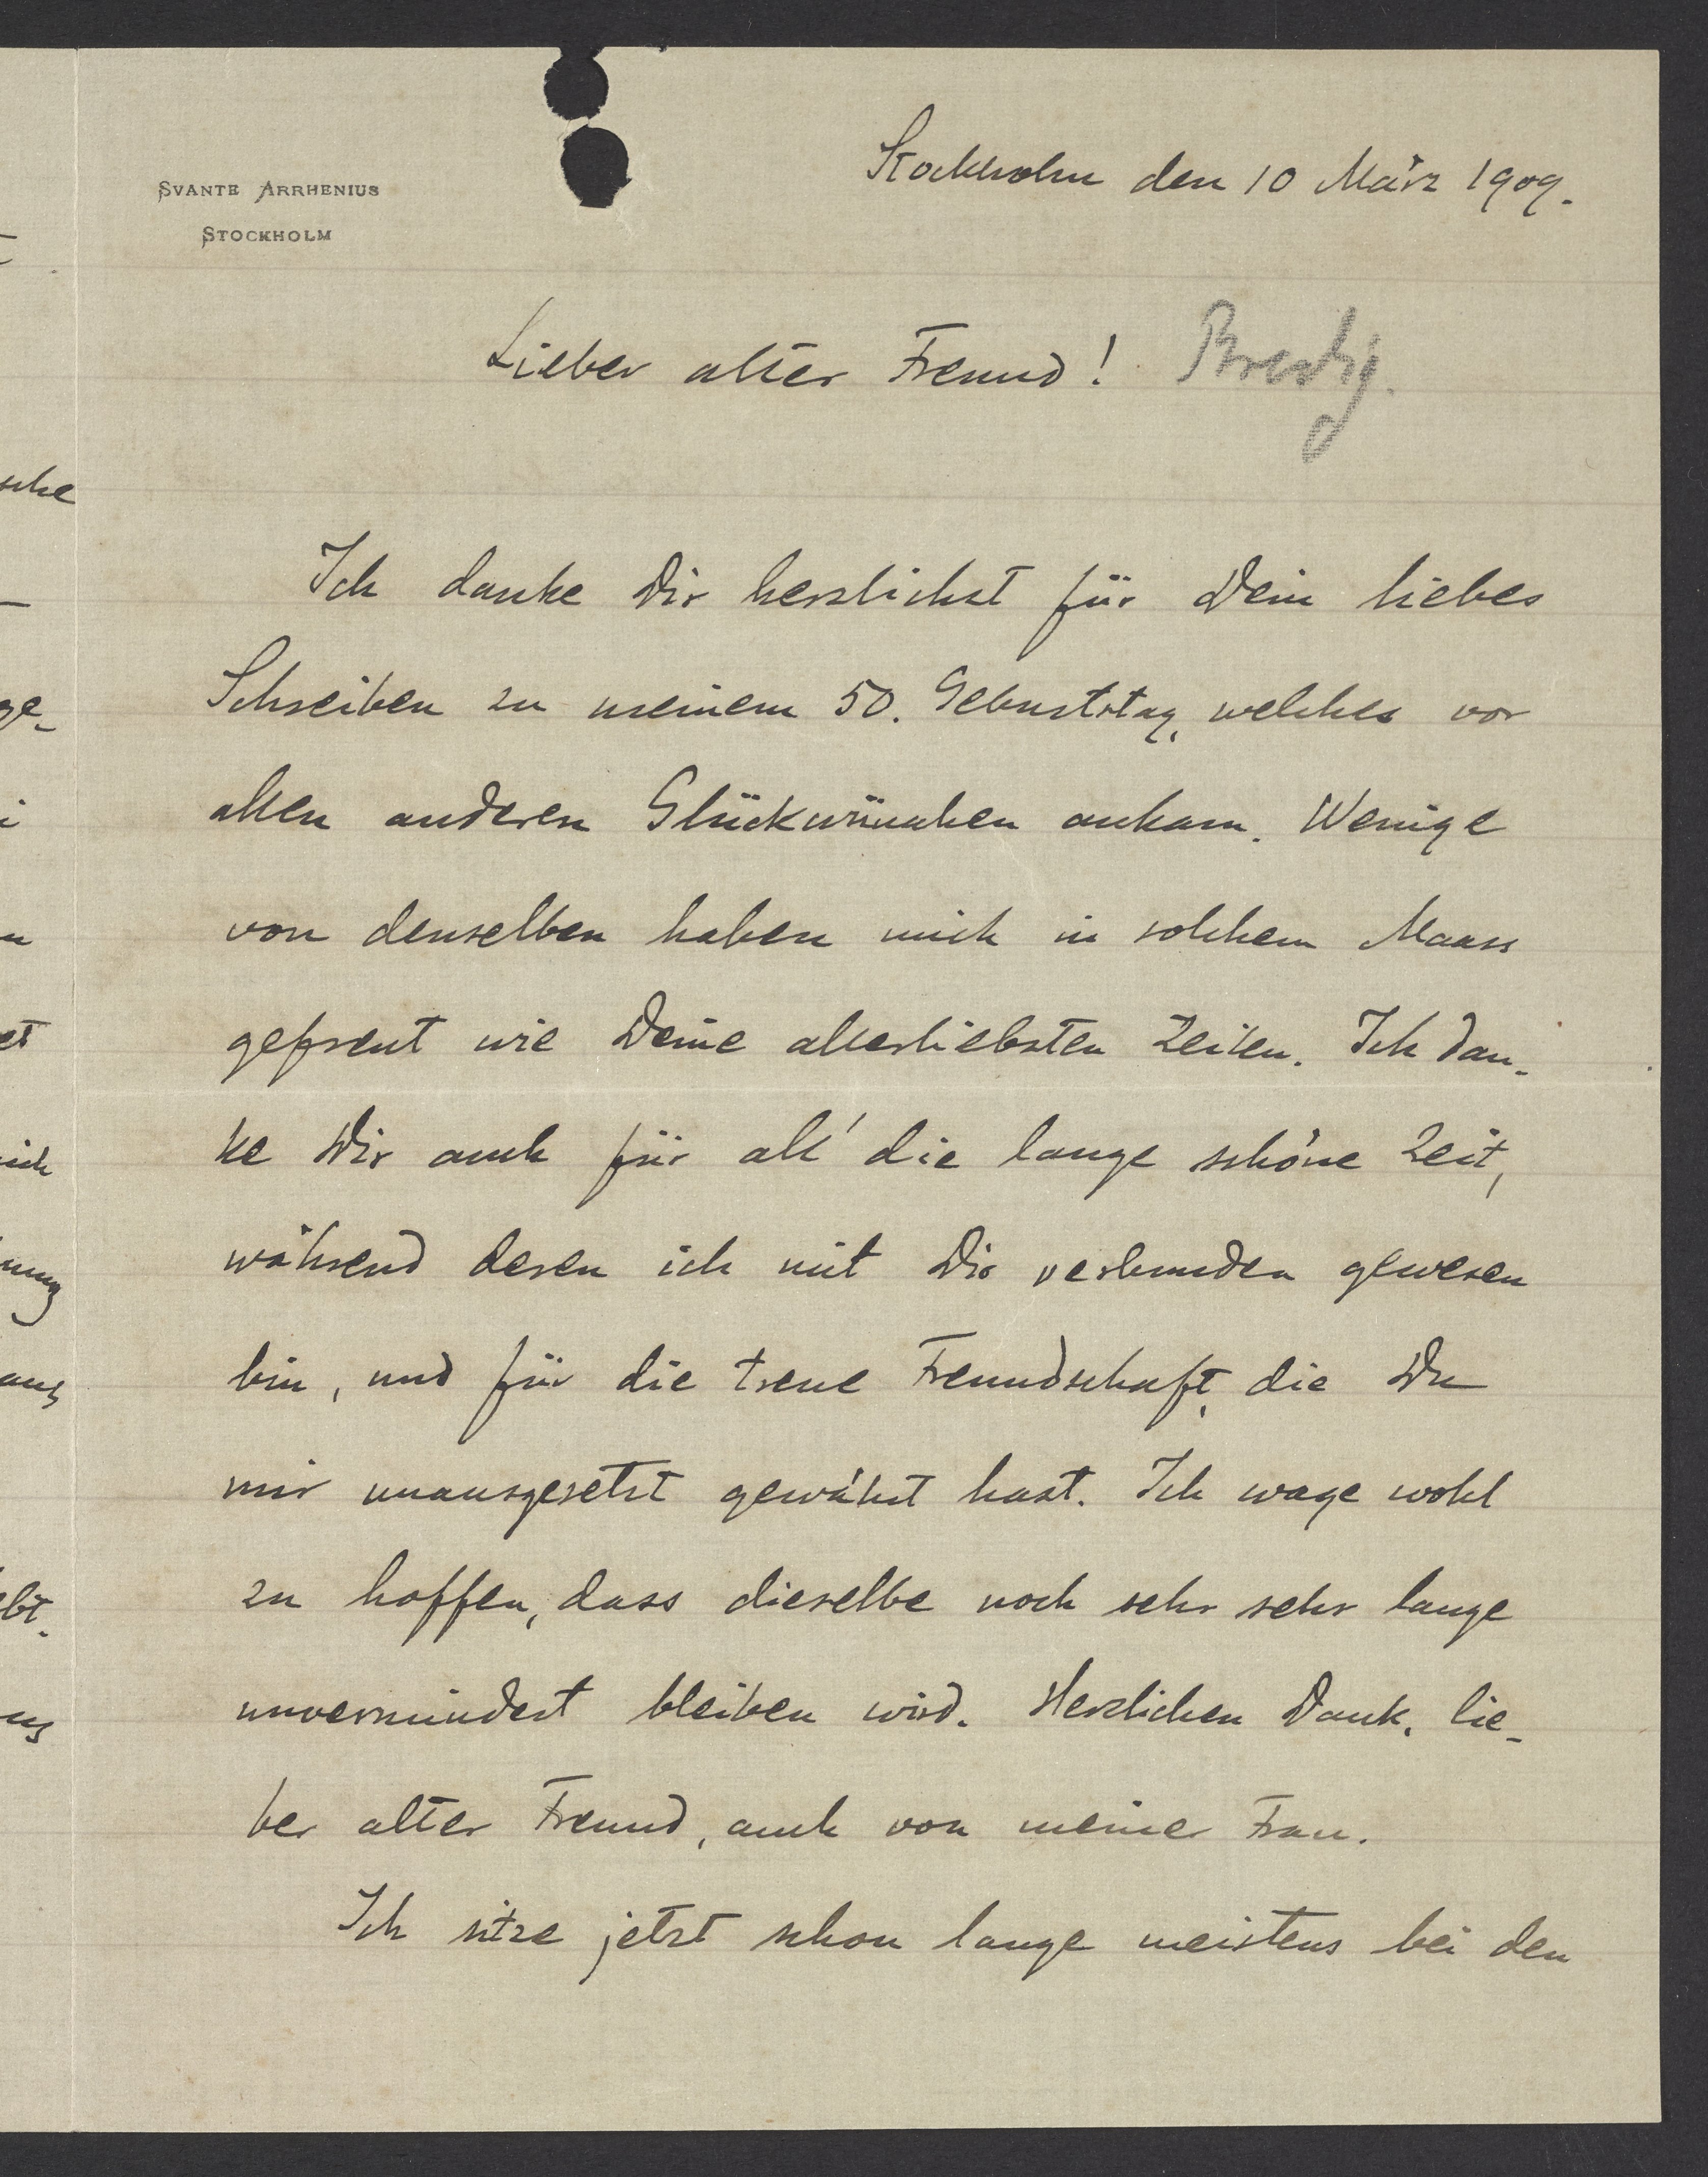 SVANTE ARRHENIUS
STOCKHOLM
Stockholm den 10 März 1909.
Lieber alter Freund!
Ich danke Dir herzlichst für Dein liebes
Schreiben zu meinem 50. Geburtstag, welches vor
allen anderen Glückwünschen ankam. Wenige
von denselben haben mich in solchem Maass
gefreut wie Deine allerliebsten Zeilen. Ich dan-
ke Dir auch für all' die lange schöne Zeit,
während deren ich mit Dir verbunden gewesen
bin, und für die treue Freundschaft, die Du
mir unausgesetzt gewährt hast. Ich wage wohl
zu hoffen, dass dieselbe noch sehr sehr lange
unvermindert bleiben wird. Herzlichen Dank, lie-
ber alter Freund, auch von meiner Frau.
Ich sitze jetzt schon lange meistens bei den